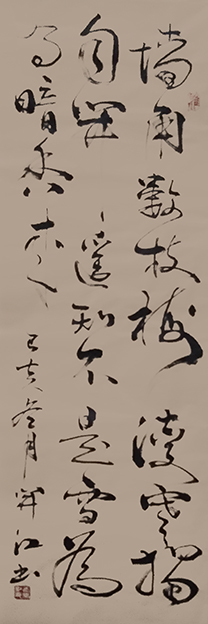 墙角數枝梅凌寒独
自開遥知不是雪為
有暗香来
己亥冬月開江书